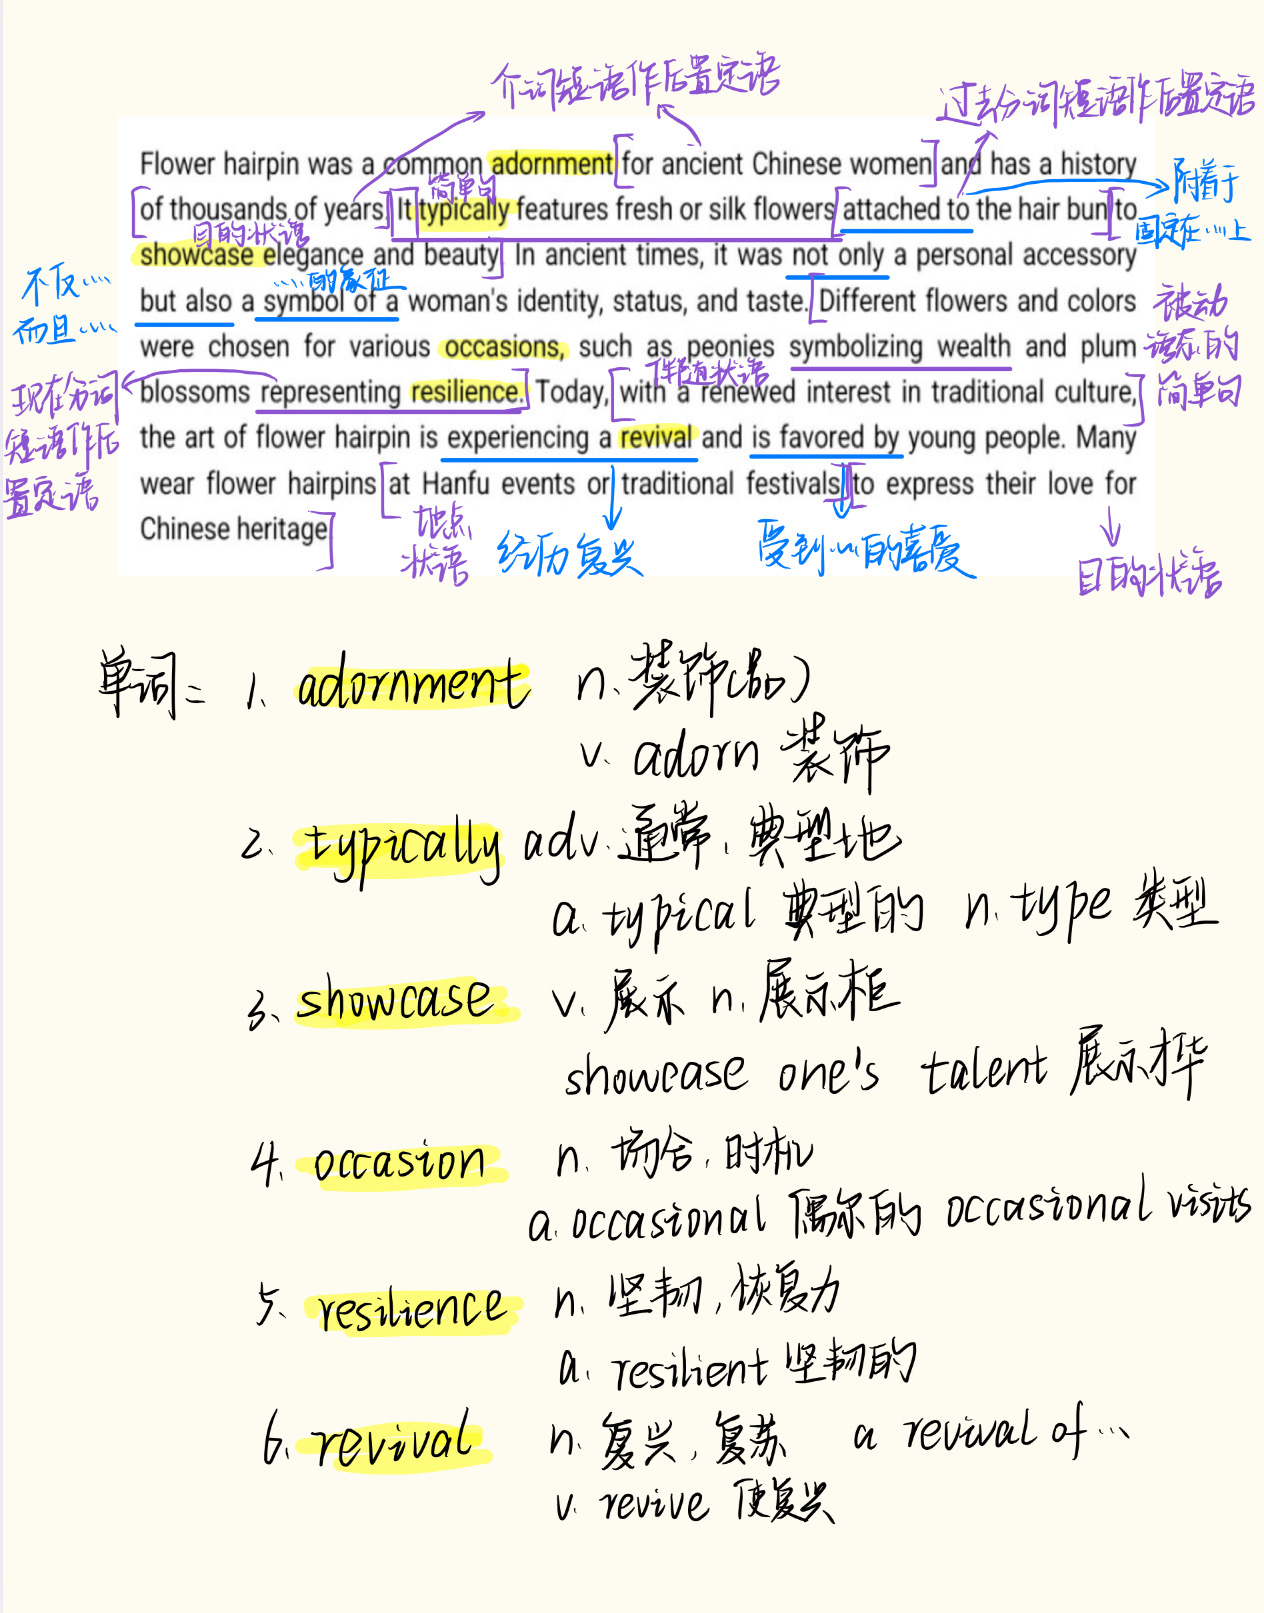 介词短语作后置定语
过去分词短语作后置定语
Flower hairpin was a common adornment [for ancient Chinese women] and has a history
附着于
简单句
[of thousands of years.] [It typically features fresh or silk flowers [attached to the hair bun] [to
固定在……上
目的状语
showcase elegance and beauty.] In ancient times, it was not only a personal accessory
不仅……
……的象征
but also a symbol of a woman's identity, status, and taste. [Different flowers and colors
而且……
被动
语态的
简单句
were chosen for various occasions, such as peonies symbolizing wealth and plum
伴随状语
现在分词
短语作后
置定语
blossoms representing resilience.] Today, [with a renewed interest in traditional culture,]
the art of flower hairpin is experiencing a revival and is favored by young people. Many
wear flower hairpins [at Hanfu events or traditional festivals] [to express their love for
Chinese heritage.]
地点
状语
经历复兴
受到……的喜爱
目的状语
单词: 1. adornment n. 装饰(品)
v. adorn 装饰
2. typically adv. 通常, 典型地
a. typical 典型的 n. type 类型
3. showcase v. 展示 n. 展示柜
showcase one's talent 展示才华
4. occasion n. 场合, 时机
a. occasional 偶尔的 occasional visits
5. resilience n. 坚韧, 恢复力
a. resilient 坚韧的
6. revival n. 复兴, 复苏 a revival of …
v. revive 使复兴